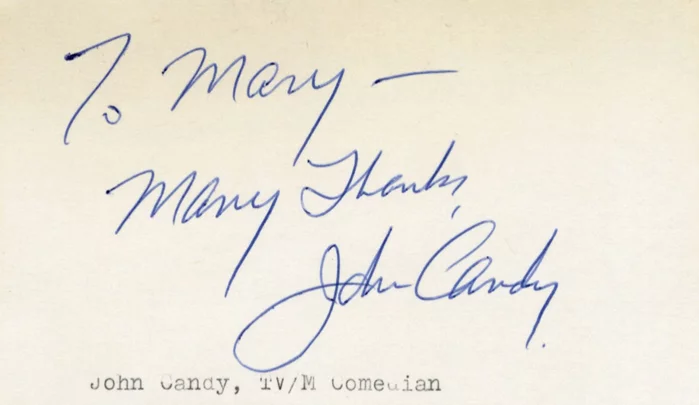 To Mary —
Many Thanks,
John Candy.
John Candy, TV/M Comedian